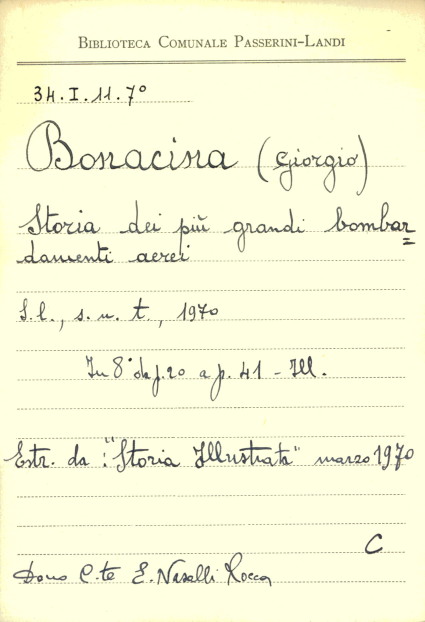 BIBLIOTECA COMUNALE PASSERINI-LANDI
34.I.11.7°
Bonacina (Giorgio)
Storia dei più grandi bombar=
damenti aerei
S.l., s.n.t., 1970
In 8° da p.20 a p.41 - Ill.
Estr. da: "Storia Illustrata" marzo 1970
C
Dono C.te E. Nasalli Rocca